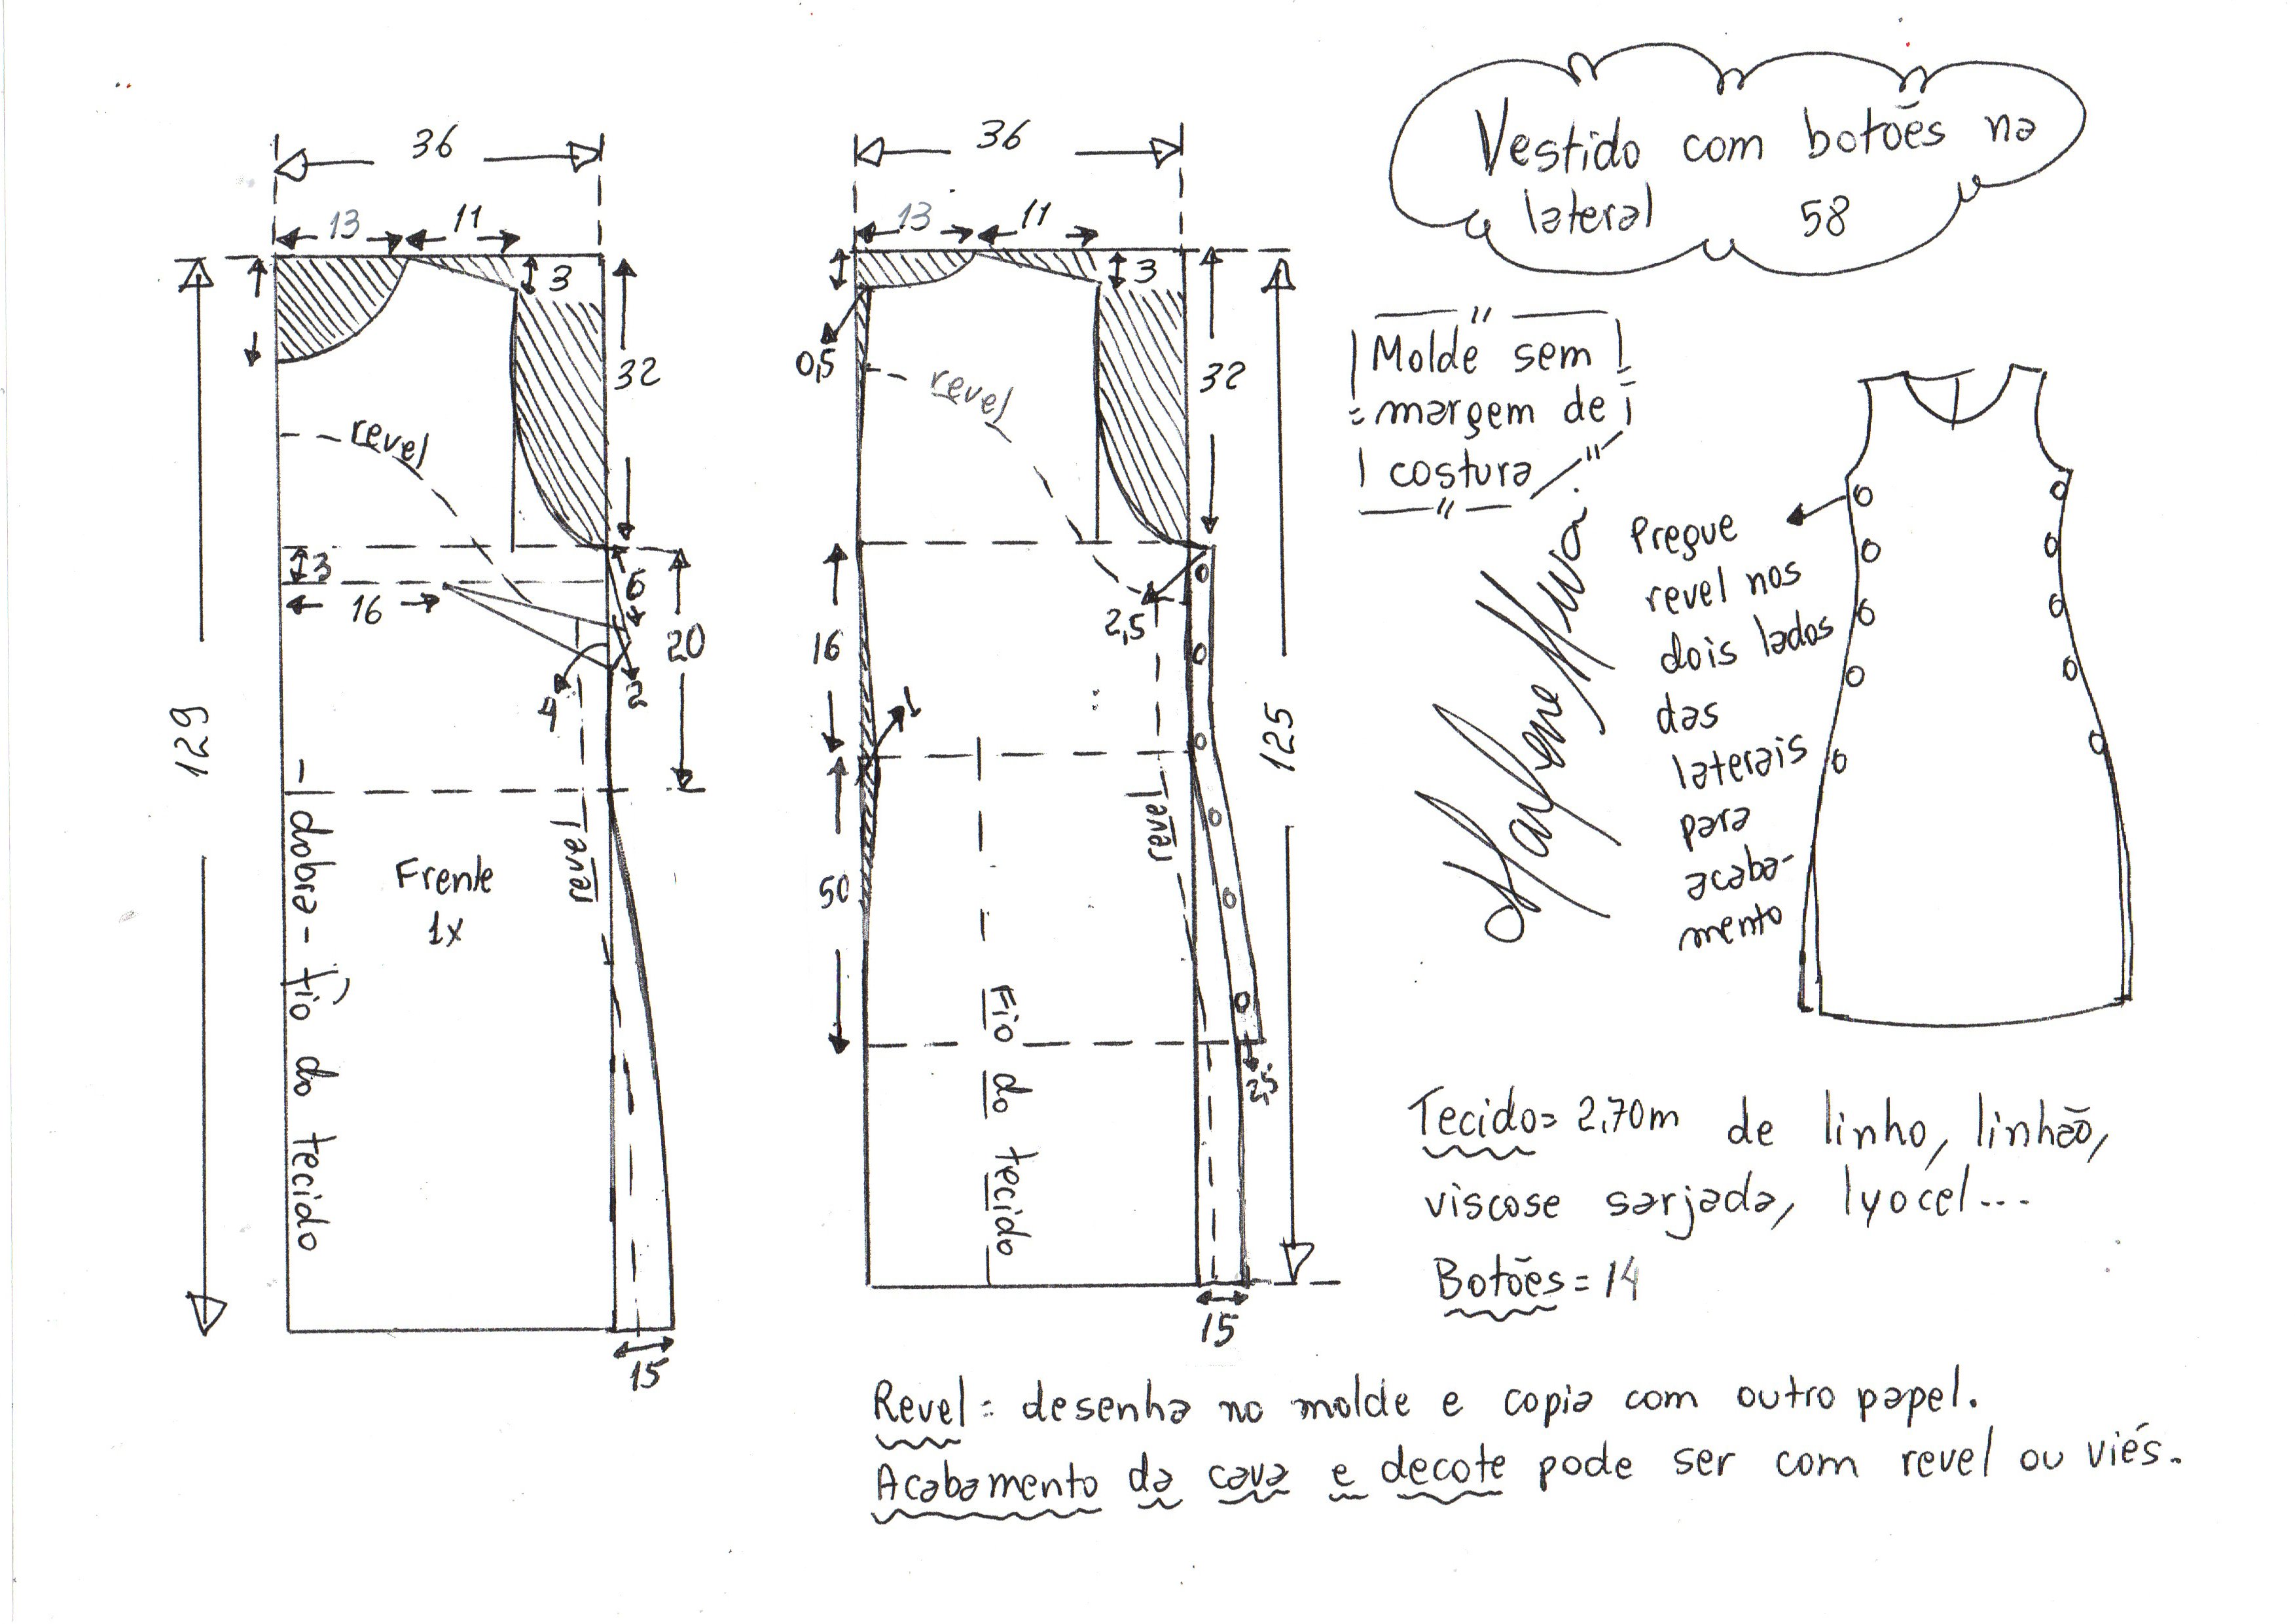 36
13 11
3
32
129
revel
3
16
6
20
4 2
revel
Frente
1x
- dobra - fio do tecido
15
36
13 11
3
0,5
revel
32
2,5
16
1
125
revel
50
Fio do tecido
2,5
15
Vestido com botões na
lateral 58
Molde sem
margem de
costura
Marlene Mukai
Pregue
revel nos
dois lados
das
laterais
para
acaba-
mento
Tecido= 2,70m de linho, linhão,
viscose sarjada, lyocel...
Botões = 14
Revel = desenha no molde e copia com outro papel.
Acabamento da cava e decote pode ser com revel ou viés.